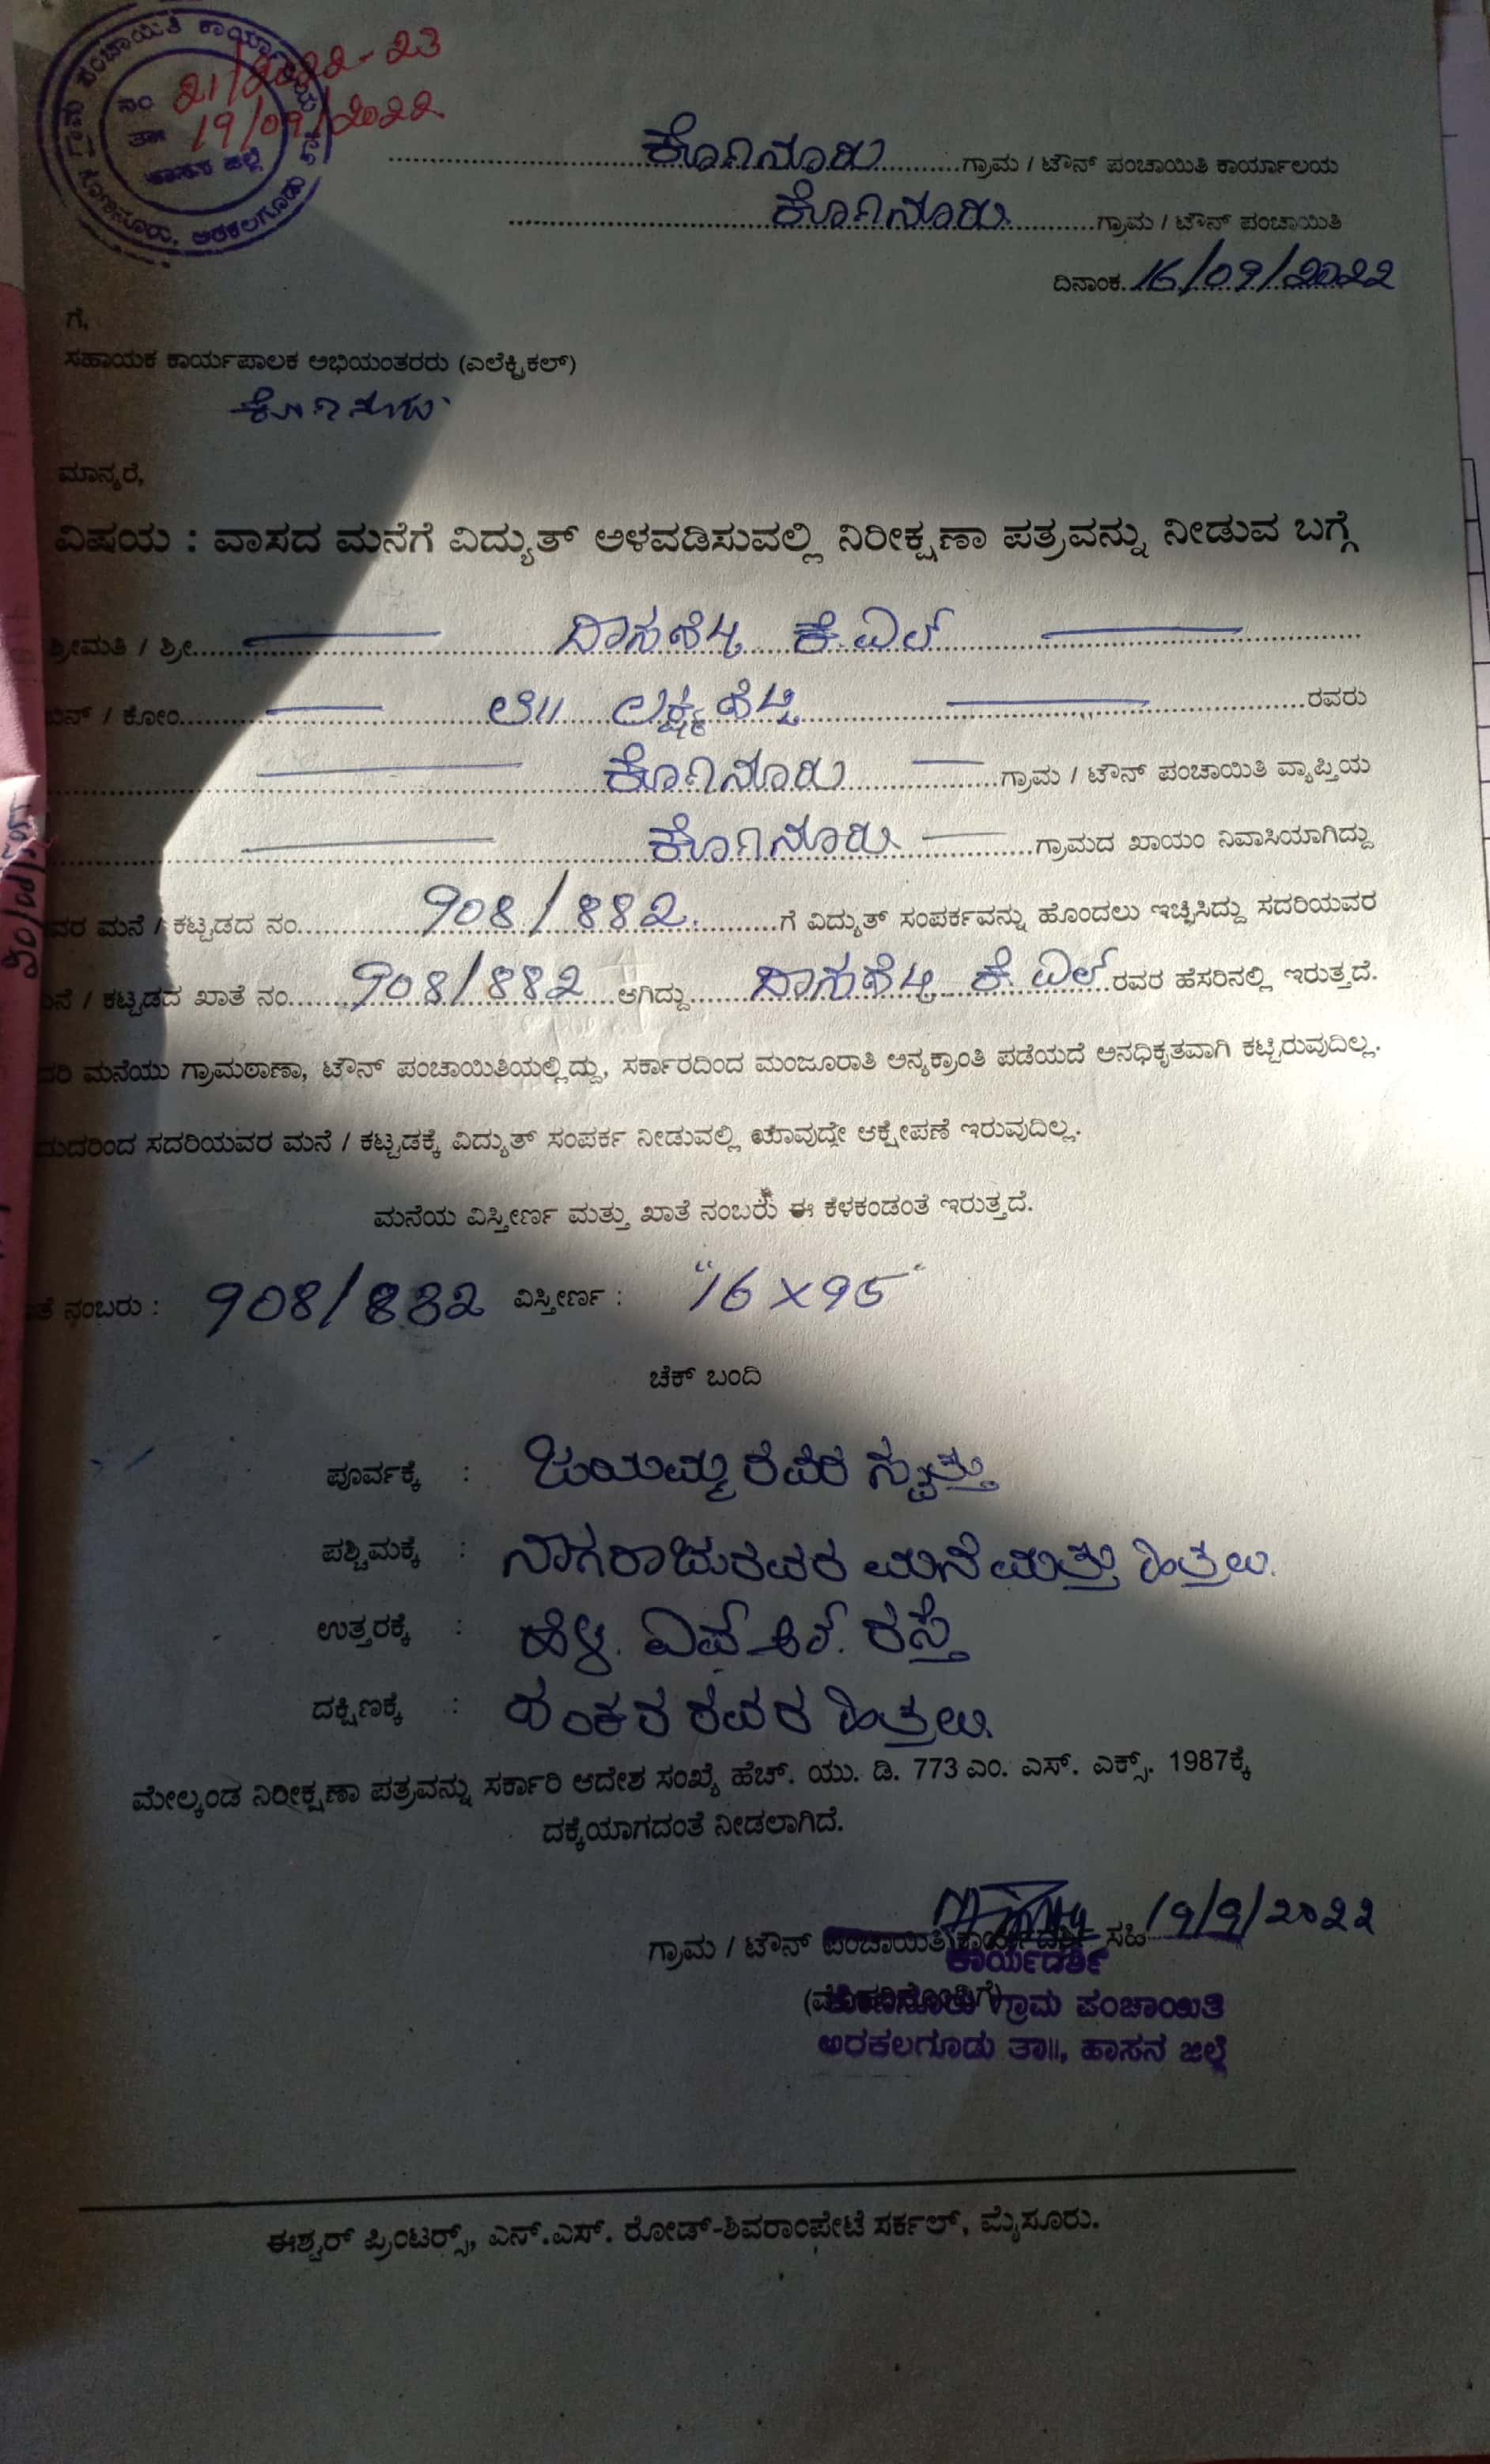 ಗ್ರಾಮ ಪಂಚಾಯಿತಿ ಕಾರ್ಯಾಲಯ
ನಂ 21/2022-23
ತಾ 19/09/2022
ಹಾಸನ ಜಿಲ್ಲೆ
ಕೊಣನೂರು, ಅರಕಲಗೂಡು
ಕೊಣನೂರು ಗ್ರಾಮ / ಟೌನ್ ಪಂಚಾಯಿತಿ ಕಾರ್ಯಾಲಯ
ಕೊಣನೂರು ಗ್ರಾಮ / ಟೌನ್ ಪಂಚಾಯಿತಿ
ದಿನಾಂಕ. 16/09/2022
ಗೆ,
ಸಹಾಯಕ ಕಾರ್ಯಪಾಲಕ ಅಭಿಯಂತರರು (ಎಲೆಕ್ಟ್ರಿಕಲ್)
ಕೊಣನೂರು
ಮಾನ್ಯರೆ,
ವಿಷಯ : ವಾಸದ ಮನೆಗೆ ವಿದ್ಯುತ್ ಅಳವಡಿಸುವಲ್ಲಿ ನಿರೀಕ್ಷಣಾ ಪತ್ರವನ್ನು ನೀಡುವ ಬಗ್ಗೆ
ಶ್ರೀಮತಿ / ಶ್ರೀ. ದಾಸಶೆಟ್ಟಿ ಕೆ.ಎಲ್
ಬಿನ್ / ಕೋಂ. ಲೇ॥ ಲಕ್ಷ್ಮಶೆಟ್ಟಿ ರವರು
ಕೊಣನೂರು ಗ್ರಾಮ / ಟೌನ್ ಪಂಚಾಯಿತಿ ವ್ಯಾಪ್ತಿಯ
ಕೊಣನೂರು ಗ್ರಾಮದ ಖಾಯಂ ನಿವಾಸಿಯಾಗಿದ್ದು
ವರ ಮನೆ / ಕಟ್ಟಡದ ನಂ. 908/882. ಗೆ ವಿದ್ಯುತ್ ಸಂಪರ್ಕವನ್ನು ಹೊಂದಲು ಇಚ್ಛಿಸಿದ್ದು ಸದರಿಯವರ
ನೆ / ಕಟ್ಟಡದ ಖಾತೆ ನಂ. 908/882 ಆಗಿದ್ದು ದಾಸಶೆಟ್ಟಿ ಕೆ.ಎಲ್ ರವರ ಹೆಸರಿನಲ್ಲಿ ಇರುತ್ತದೆ.
ರಿ ಮನೆಯು ಗ್ರಾಮಠಾಣಾ, ಟೌನ್ ಪಂಚಾಯಿತಿಯಲ್ಲಿದ್ದು, ಸರ್ಕಾರದಿಂದ ಮಂಜೂರಾತಿ ಅನ್ಯಕ್ರಾಂತಿ ಪಡೆಯದೆ ಅನಧಿಕೃತವಾಗಿ ಕಟ್ಟಿರುವುದಿಲ್ಲ.
ದರಿಂದ ಸದರಿಯವರ ಮನೆ / ಕಟ್ಟಡಕ್ಕೆ ವಿದ್ಯುತ್ ಸಂಪರ್ಕ ನೀಡುವಲ್ಲಿ ಯಾವುದೇ ಆಕ್ಷೇಪಣೆ ಇರುವುದಿಲ್ಲ.
ಮನೆಯ ವಿಸ್ತೀರ್ಣ ಮತ್ತು ಖಾತೆ ನಂಬರು ಈ ಕೆಳಕಂಡಂತೆ ಇರುತ್ತದೆ.
ತೆ ನಂಬರು : 908/882 ವಿಸ್ತೀರ್ಣ : "16 × 95"
ಚೆಕ್ ಬಂದಿ
ಪೂರ್ವಕ್ಕೆ : ಜಯಮ್ಮ ರವರ ಸ್ವತ್ತು
ಪಶ್ಚಿಮಕ್ಕೆ : ನಾಗರಾಜುರವರ ಮನೆ ಮತ್ತು ಹಿತ್ತಲು.
ಉತ್ತರಕ್ಕೆ : ರಸ್ತೆ
ದಕ್ಷಿಣಕ್ಕೆ : ಶಂಕರ ರವರ ಹಿತ್ತಲು.
ಮೇಲ್ಕಂಡ ನಿರೀಕ್ಷಣಾ ಪತ್ರವನ್ನು ಸರ್ಕಾರಿ ಆದೇಶ ಸಂಖ್ಯೆ ಹೆಚ್. ಯು. ಡಿ. 773 ಎಂ. ಎಸ್. ಎಕ್ಸ್. 1987ಕ್ಕೆ
ದಕ್ಕೆಯಾಗದಂತೆ ನೀಡಲಾಗಿದೆ.
ಗ್ರಾಮ / ಟೌನ್ ಪಂಚಾಯಿತಿ ಕಾರ್ಯದರ್ಶಿ ಸಹಿ 19/9/2022
ಕಾರ್ಯದರ್ಶಿ
ಕೊಣನೂರು ಗ್ರಾಮ ಪಂಚಾಯಿತಿ
ಅರಕಲಗೂಡು ತಾ॥, ಹಾಸನ ಜಿಲ್ಲೆ
ಈಶ್ವರ್ ಪ್ರಿಂಟರ್ಸ್, ಎನ್.ಎಸ್. ರೋಡ್-ಶಿವರಾಂಪೇಟೆ ಸರ್ಕಲ್, ಮೈಸೂರು.